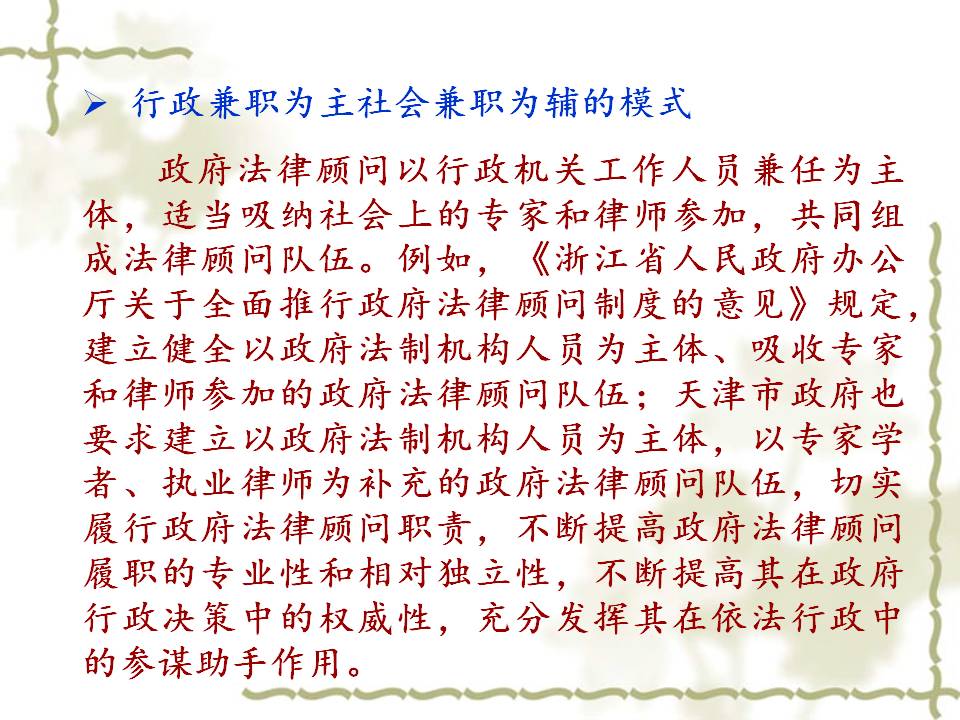 行政兼职为主社会兼职为辅的模式
政府法律顾问以行政机关工作人员兼任为主
体，适当吸纳社会上的专家和律师参加，共同组
成法律顾问队伍。例如，《浙江省人民政府办公
厅关于全面推行政府法律顾问制度的意见》规定，
建立健全以政府法制机构人员为主体、吸收专家
和律师参加的政府法律顾问队伍；天津市政府也
要求建立以政府法制机构人员为主体，以专家学
者、执业律师为补充的政府法律顾问队伍，切实
履行政府法律顾问职责，不断提高政府法律顾问
履职的专业性和相对独立性，不断提高其在政府
行政决策中的权威性，充分发挥其在依法行政中
的参谋助手作用。